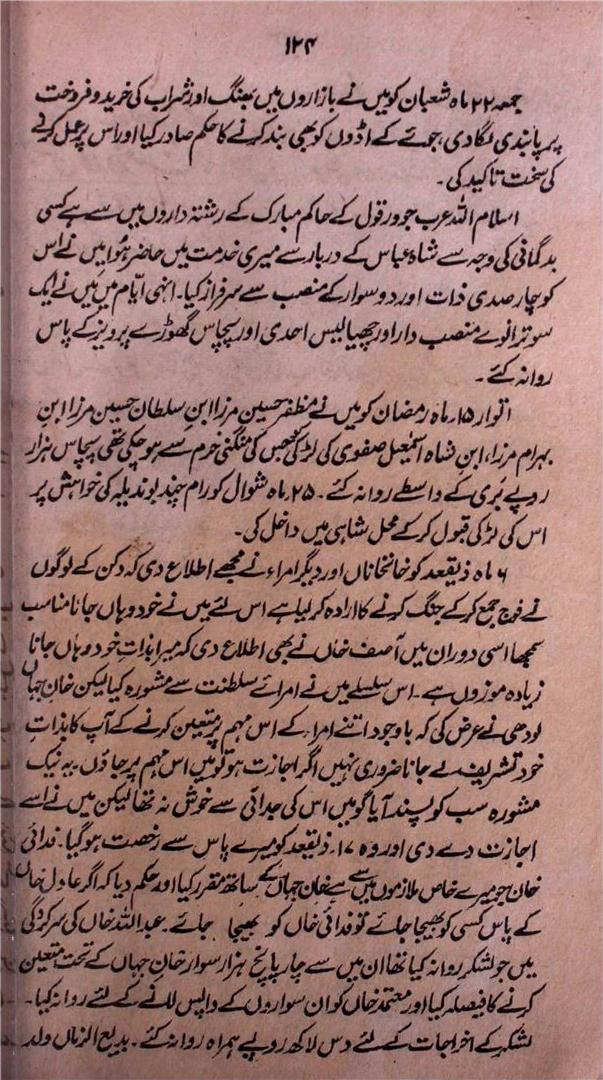 ۱۲۴
جمعہ ۲۲ ماہ شعبان کو میں نے بازاروں میں بھنگ اور شراب کی خرید و فروخت
پر پابندی لگا دی، جوئے کے اڈوں کو بھی بند کرنے کا حکم صادر کیا اور اس پر عمل کرنے
کی سخت تاکید کی۔
اسلام اللہ عرب جو ورقول کے حاکم مبارک کے رشتہ داروں میں سے ہے کسی
بدگمانی کی وجہ سے شاہ عباس کے دربار سے میری خدمت میں حاضر ہُوا میں نے اس
کو چار صدی ذات اور دو سوار کے منصب سے سرفراز کیا۔ انہی ایّام میں میں نے ایک
سو ترانوے منصب دار اور چھیالیس احدی اور پچاس گھوڑے پرویز کے پاس
روانہ کئے۔
اتوار ۱۵۔ ماہ رمضان کو میں نے مظفر حسین مرزا ابن سلطان حسین مرزا ابن
بہرام مرزا، ابن شاہ اسمٰعیل صفوی کی لڑکی جس کی منگنی خرم سے ہو چکی تھی پچاس ہزار
روپے بَری کے واسطے روانہ کئے۔ ۲۵۔ ماہ شوال کو رام چند بوندیلہ کی خواہش پر
اس کی لڑکی قبول کر کے محل شاہی میں داخل کی۔
۶ ماہ ذیقعد کو خانخاناں اور دیگر امراء نے مجھے اطلاع دی کہ دکن کے لوگوں
نے فوج جمع کر کے جنگ کرنے کا ارادہ کر لیا ہے اس لئے میں نے خود وہاں جانا مناسب
سمجھا اسی دوران میں آصف خاں نے بھی اطلاع دی کہ میرا بذاتِ خود وہاں جانا
زیادہ موزوں ہے۔ اس سلسلے میں نے امرائے سلطنت سے مشورہ کیا لیکن خان جہاں
لودھی نے عرض کی کہ باوجود اتنے امراء کے اس مہم پر متعین کرنے کے آپ کا بذاتِ
خود تشریف لے جانا ضروری نہیں اگر اجازت ہو تو میں اس مہم پر جاؤں۔ یہ نیک
مشورہ سب کو پسند آیا گو میں اس کی جدائی سے خوش نہ تھا لیکن میں نے اسے
اجازت دے دی اور وہ ۱۷۔ ذیقعد کو میرے پاس سے رخصت ہو گیا۔ فدائی
خان جو میرے خاص ملازموں میں سے ہے خان جہاں کے ساتھ مقرر کیا اور حکم دیا کہ اگر عادل خاں
کے پاس کسی کو بھیجا جائے تو فدائی خاں کو بھیجا جائے۔ عبد اللہ خاں کی سرکردگی
میں جو لشکر روانہ کیا تھا ان میں سے چار پانچ ہزار سوار خان جہاں کے تحت متعین
کرنے کا فیصلہ کیا اور معتمد خاں کو ان سواروں کے واپس لانے کے لئے روانہ کیا۔
لشکر کے اخراجات کے لئے دس لاکھ روپے ہمراہ روانہ کئے۔ بدیع الزماں ولد